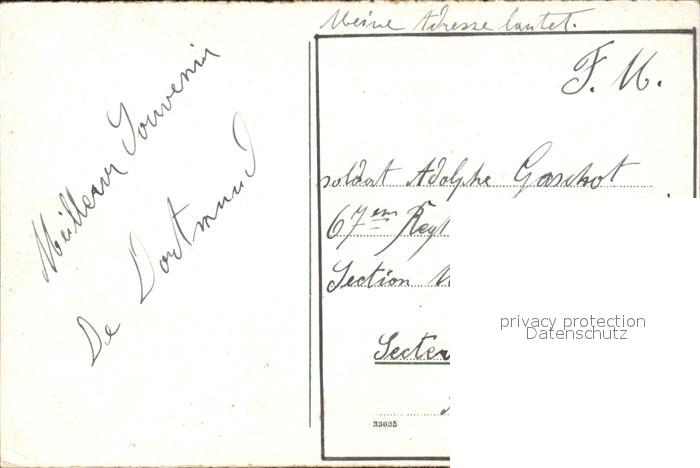 Meine Adresse lautet.
F. M.
Meilleur Souvenir
De Dortmund
soldat Adolphe Gaschot
67em Regt
Section
Secteu
privacy protection
Datenschutz
33035